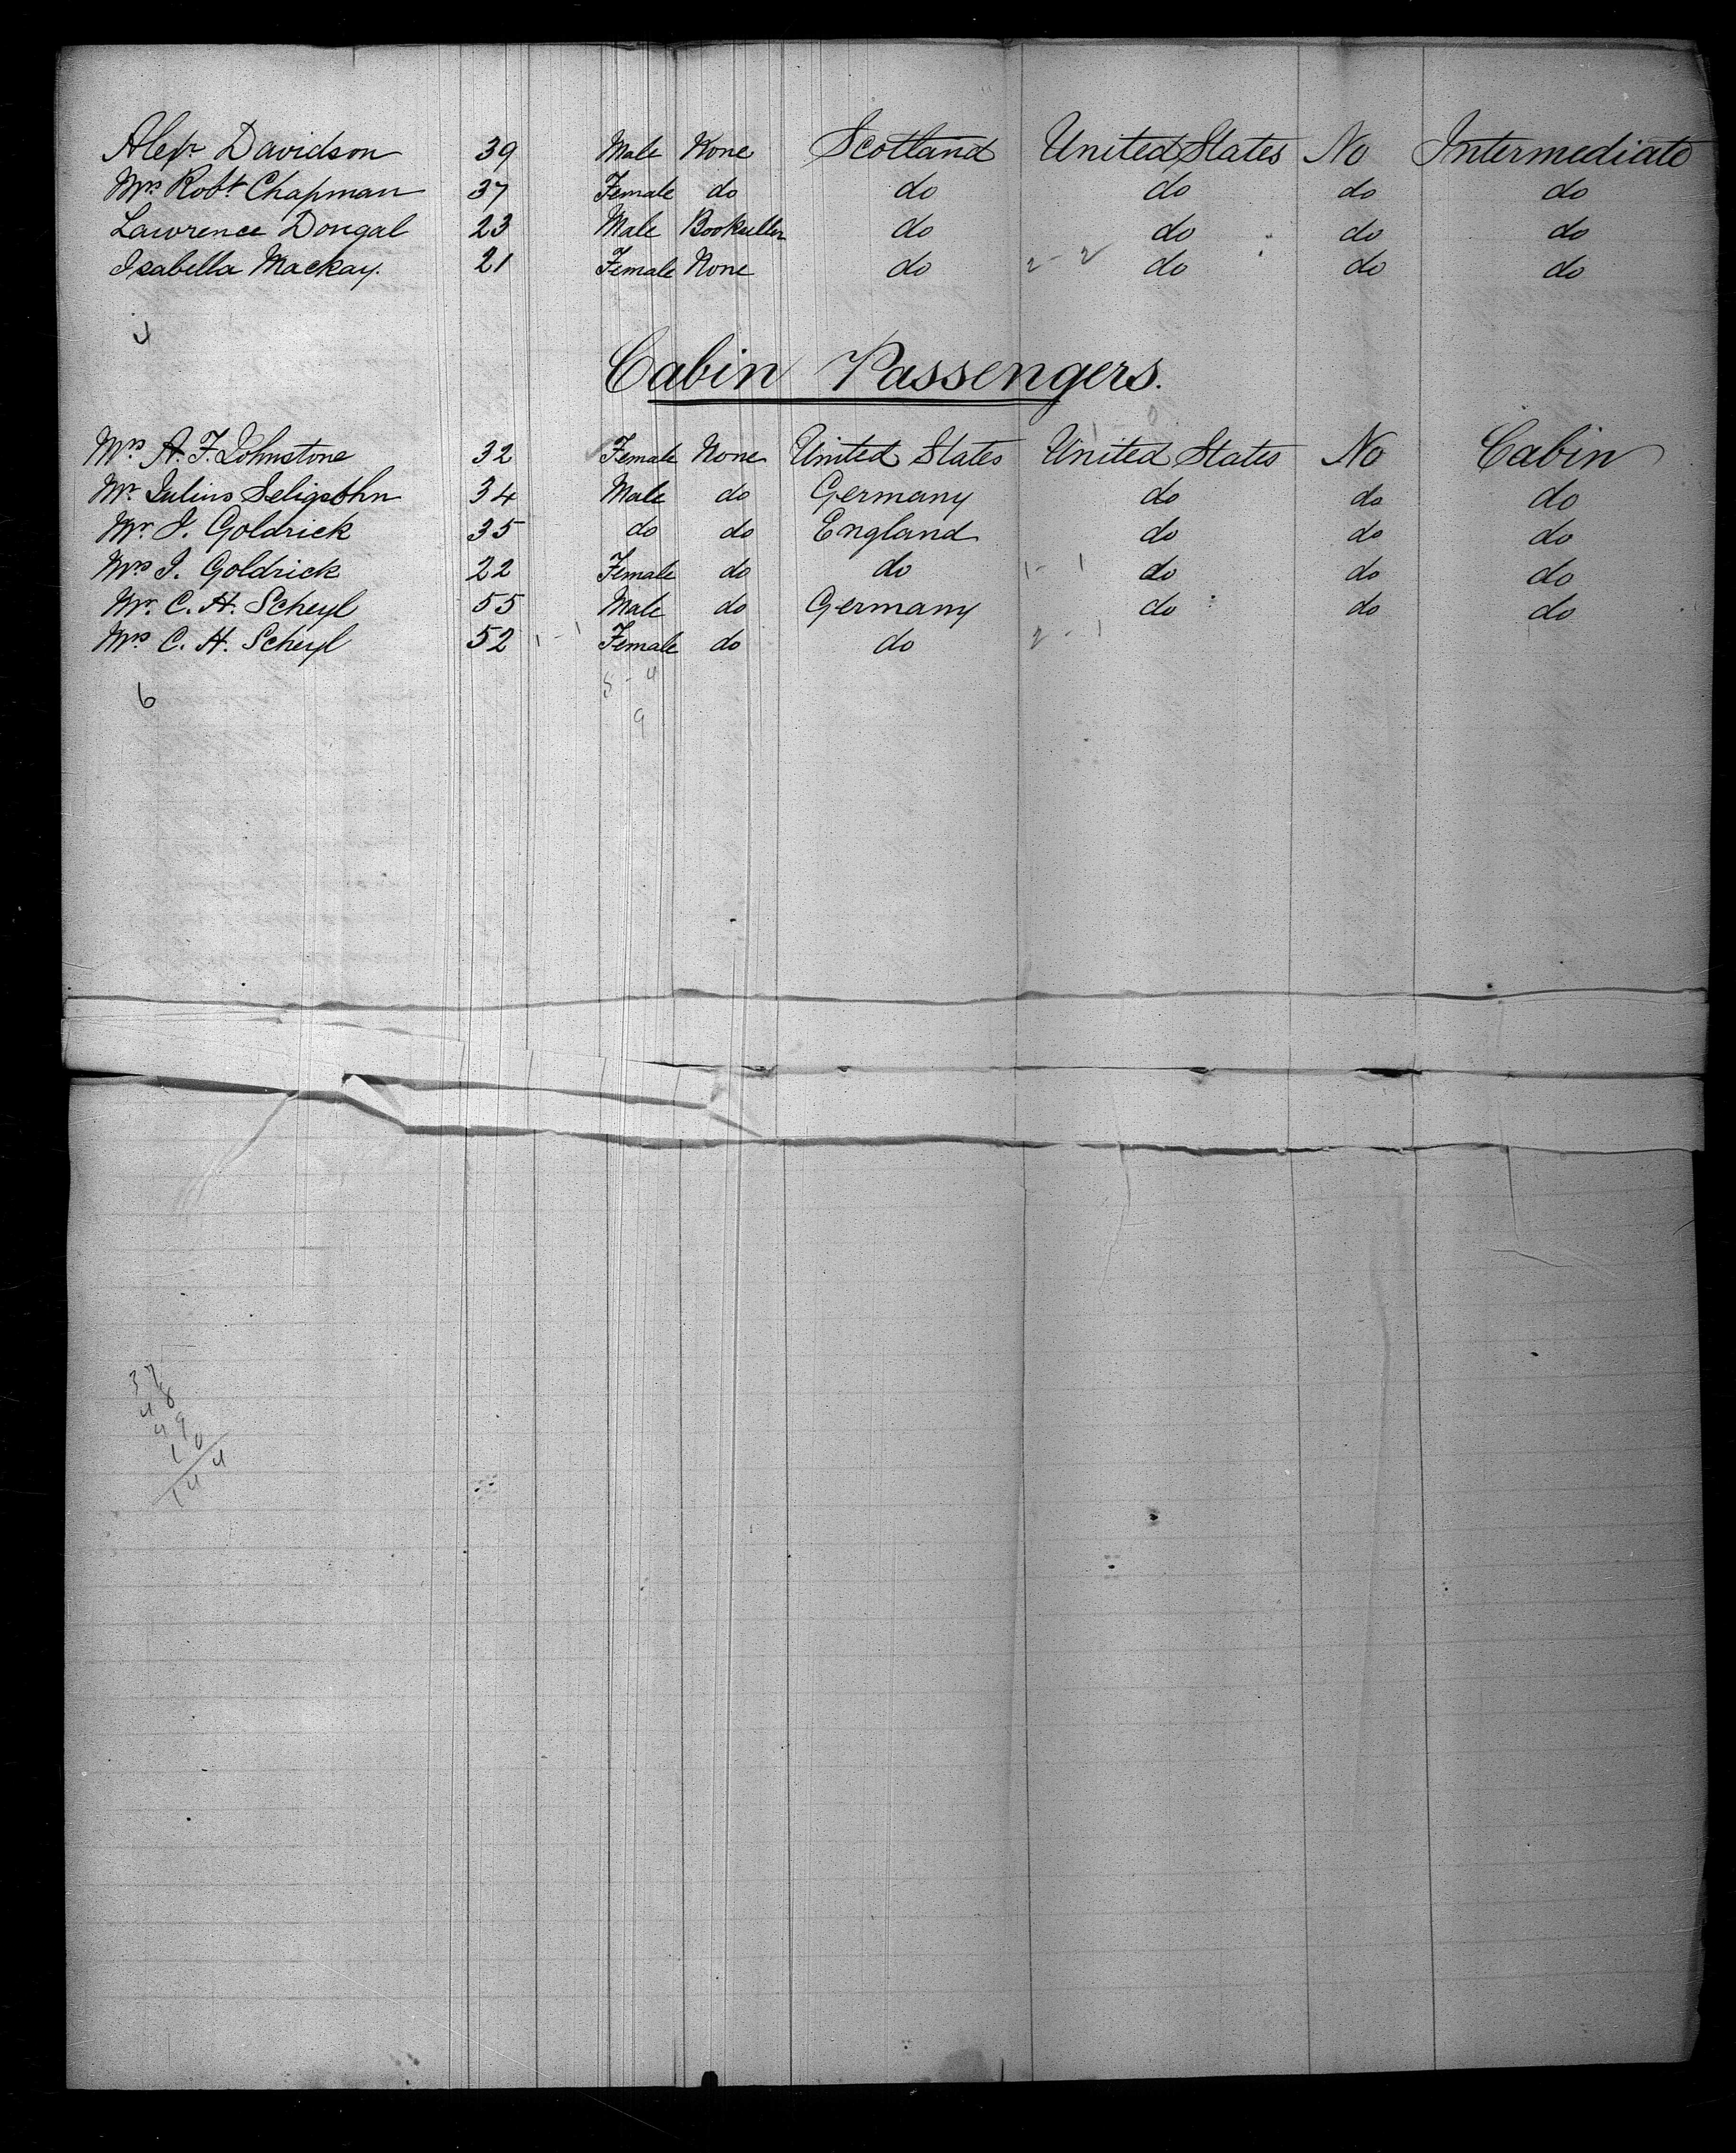 Alexr Davidson 39 Male None Scotland United States No Intermediate
Mrs Robt Chapman 37 Female do do do do do
Lawrence Dougal 23 Male Bookseller do do do do
Isabella Mackay. 21 Female None do 2 - 2 do do do
4
Cabin Passengers.
Mrs A. F. Johnstone 32 Female None United States United States No Cabin
Mr. Julius Seligsohn 34 Male do Germany do do do
Mr. J. Goldrick 35 do do England do do do
Mrs J. Goldrick 22 Female do do 1 - 1 do do do
Mr. C. H. Scheyl 55 Male do Germany do do do
Mrs C. H. Scheyl 52 1 - 1 Female do do 2 - 1
5 - 4
6
9
37
48
49
10
144